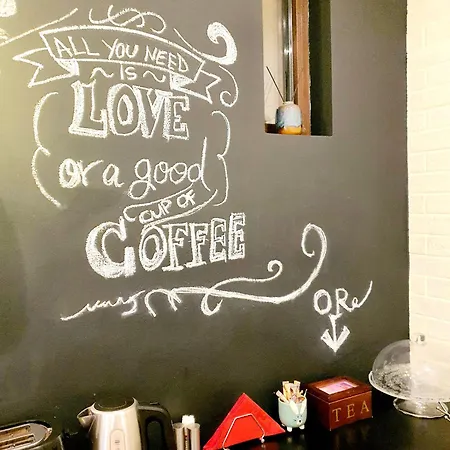 ALL YOU NEED
IS
LOVE
or a good
CUP OF
COFFEE
ORe
TEA